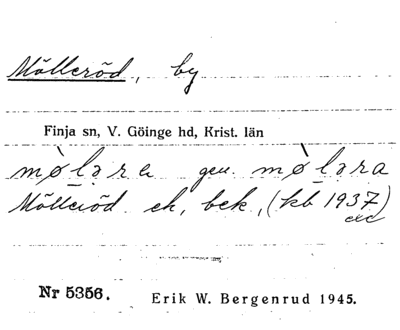 Mölleröd, by
Finja sn, V. Göinge hd, Krist. län
mø̀lǝra gen. mø̀lǝra
Mölleröd eh, bek, (kb 1937)
Nr 5356. Erik W. Bergenrud 1945.